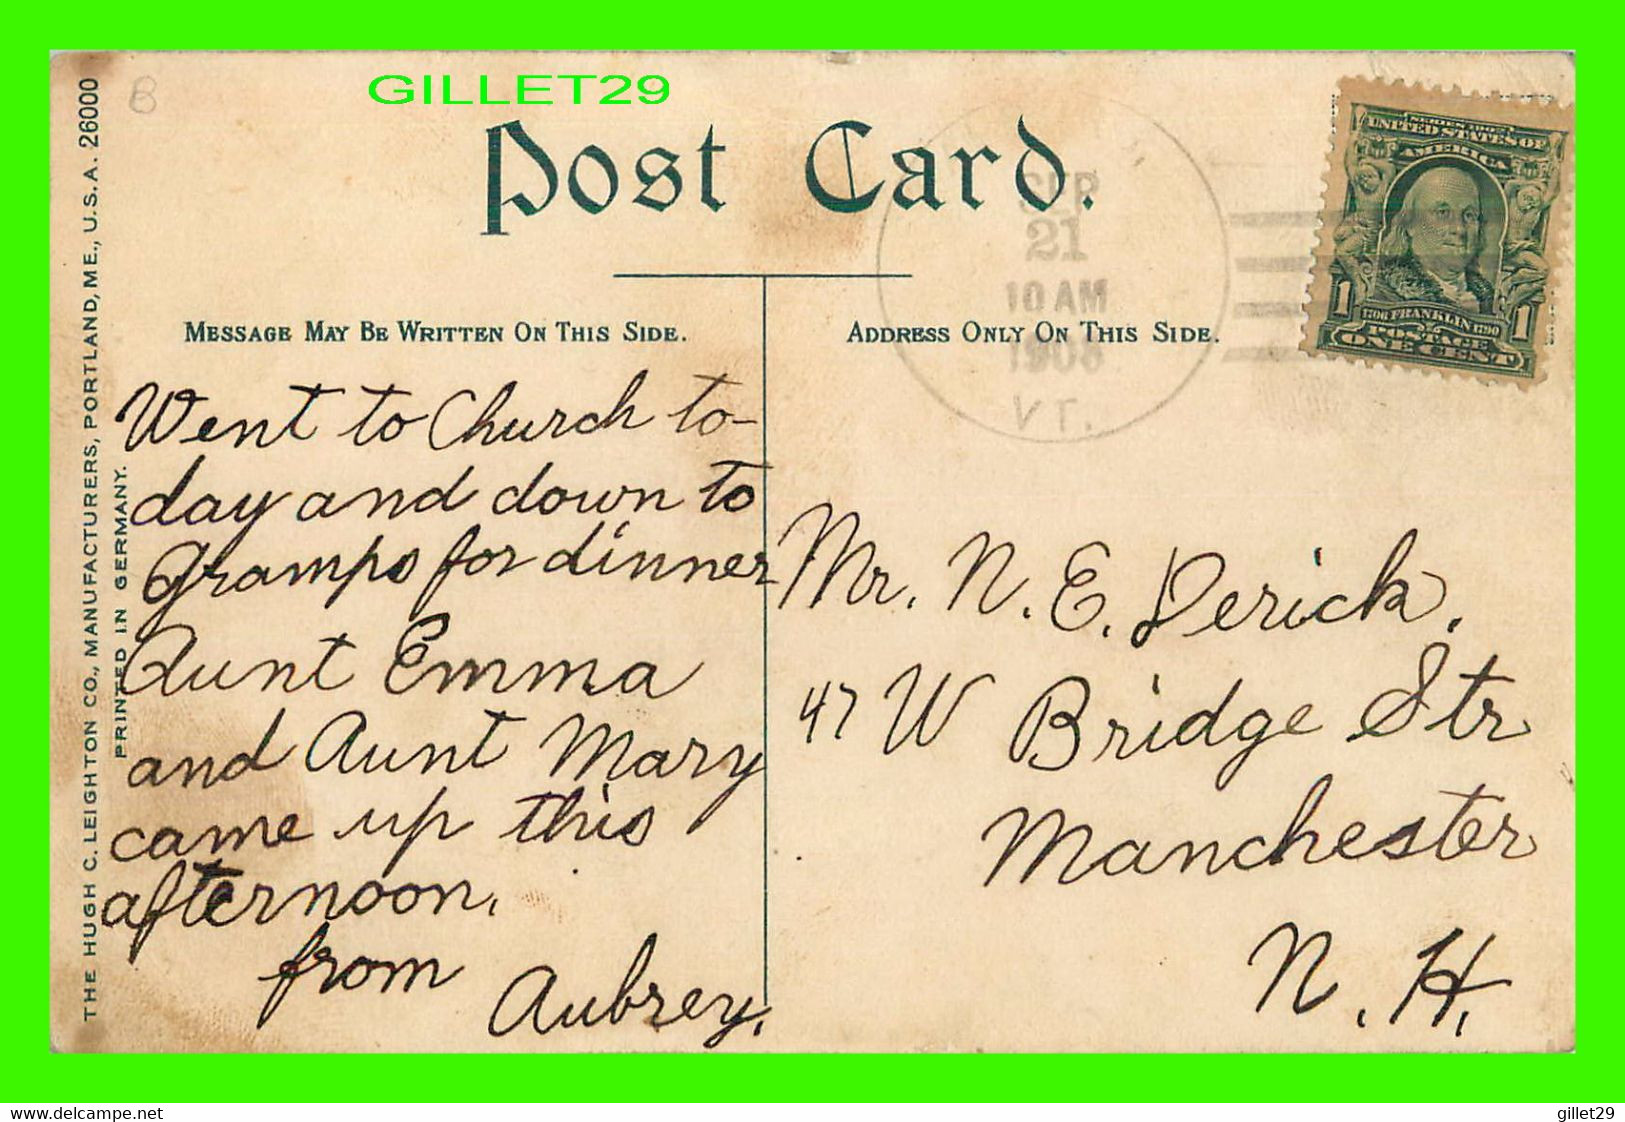 GILLET29
B
Post Card.
SEP
21
10 AM
1908
VT.
UNITED STATES OF
AMERICA
1706 FRANKLIN 1790
1 1
POSTAGE
ONE CENT
MESSAGE MAY BE WRITTEN ON THIS SIDE.
ADDRESS ONLY ON THIS SIDE.
THE HUGH C. LEIGHTON CO., MANUFACTURERS, PORTLAND, ME., U.S.A. 26000
PRINTED IN GERMANY.
Went to Church to-
day and down to
Gramps for dinner
Aunt Emma
and Aunt Mary
came up this
afternoon.
from
Aubrey.
Mr. N. E. Derick.
47 W Bridge Str
Manchester
N. H.
www.delcampe.net
gillet29